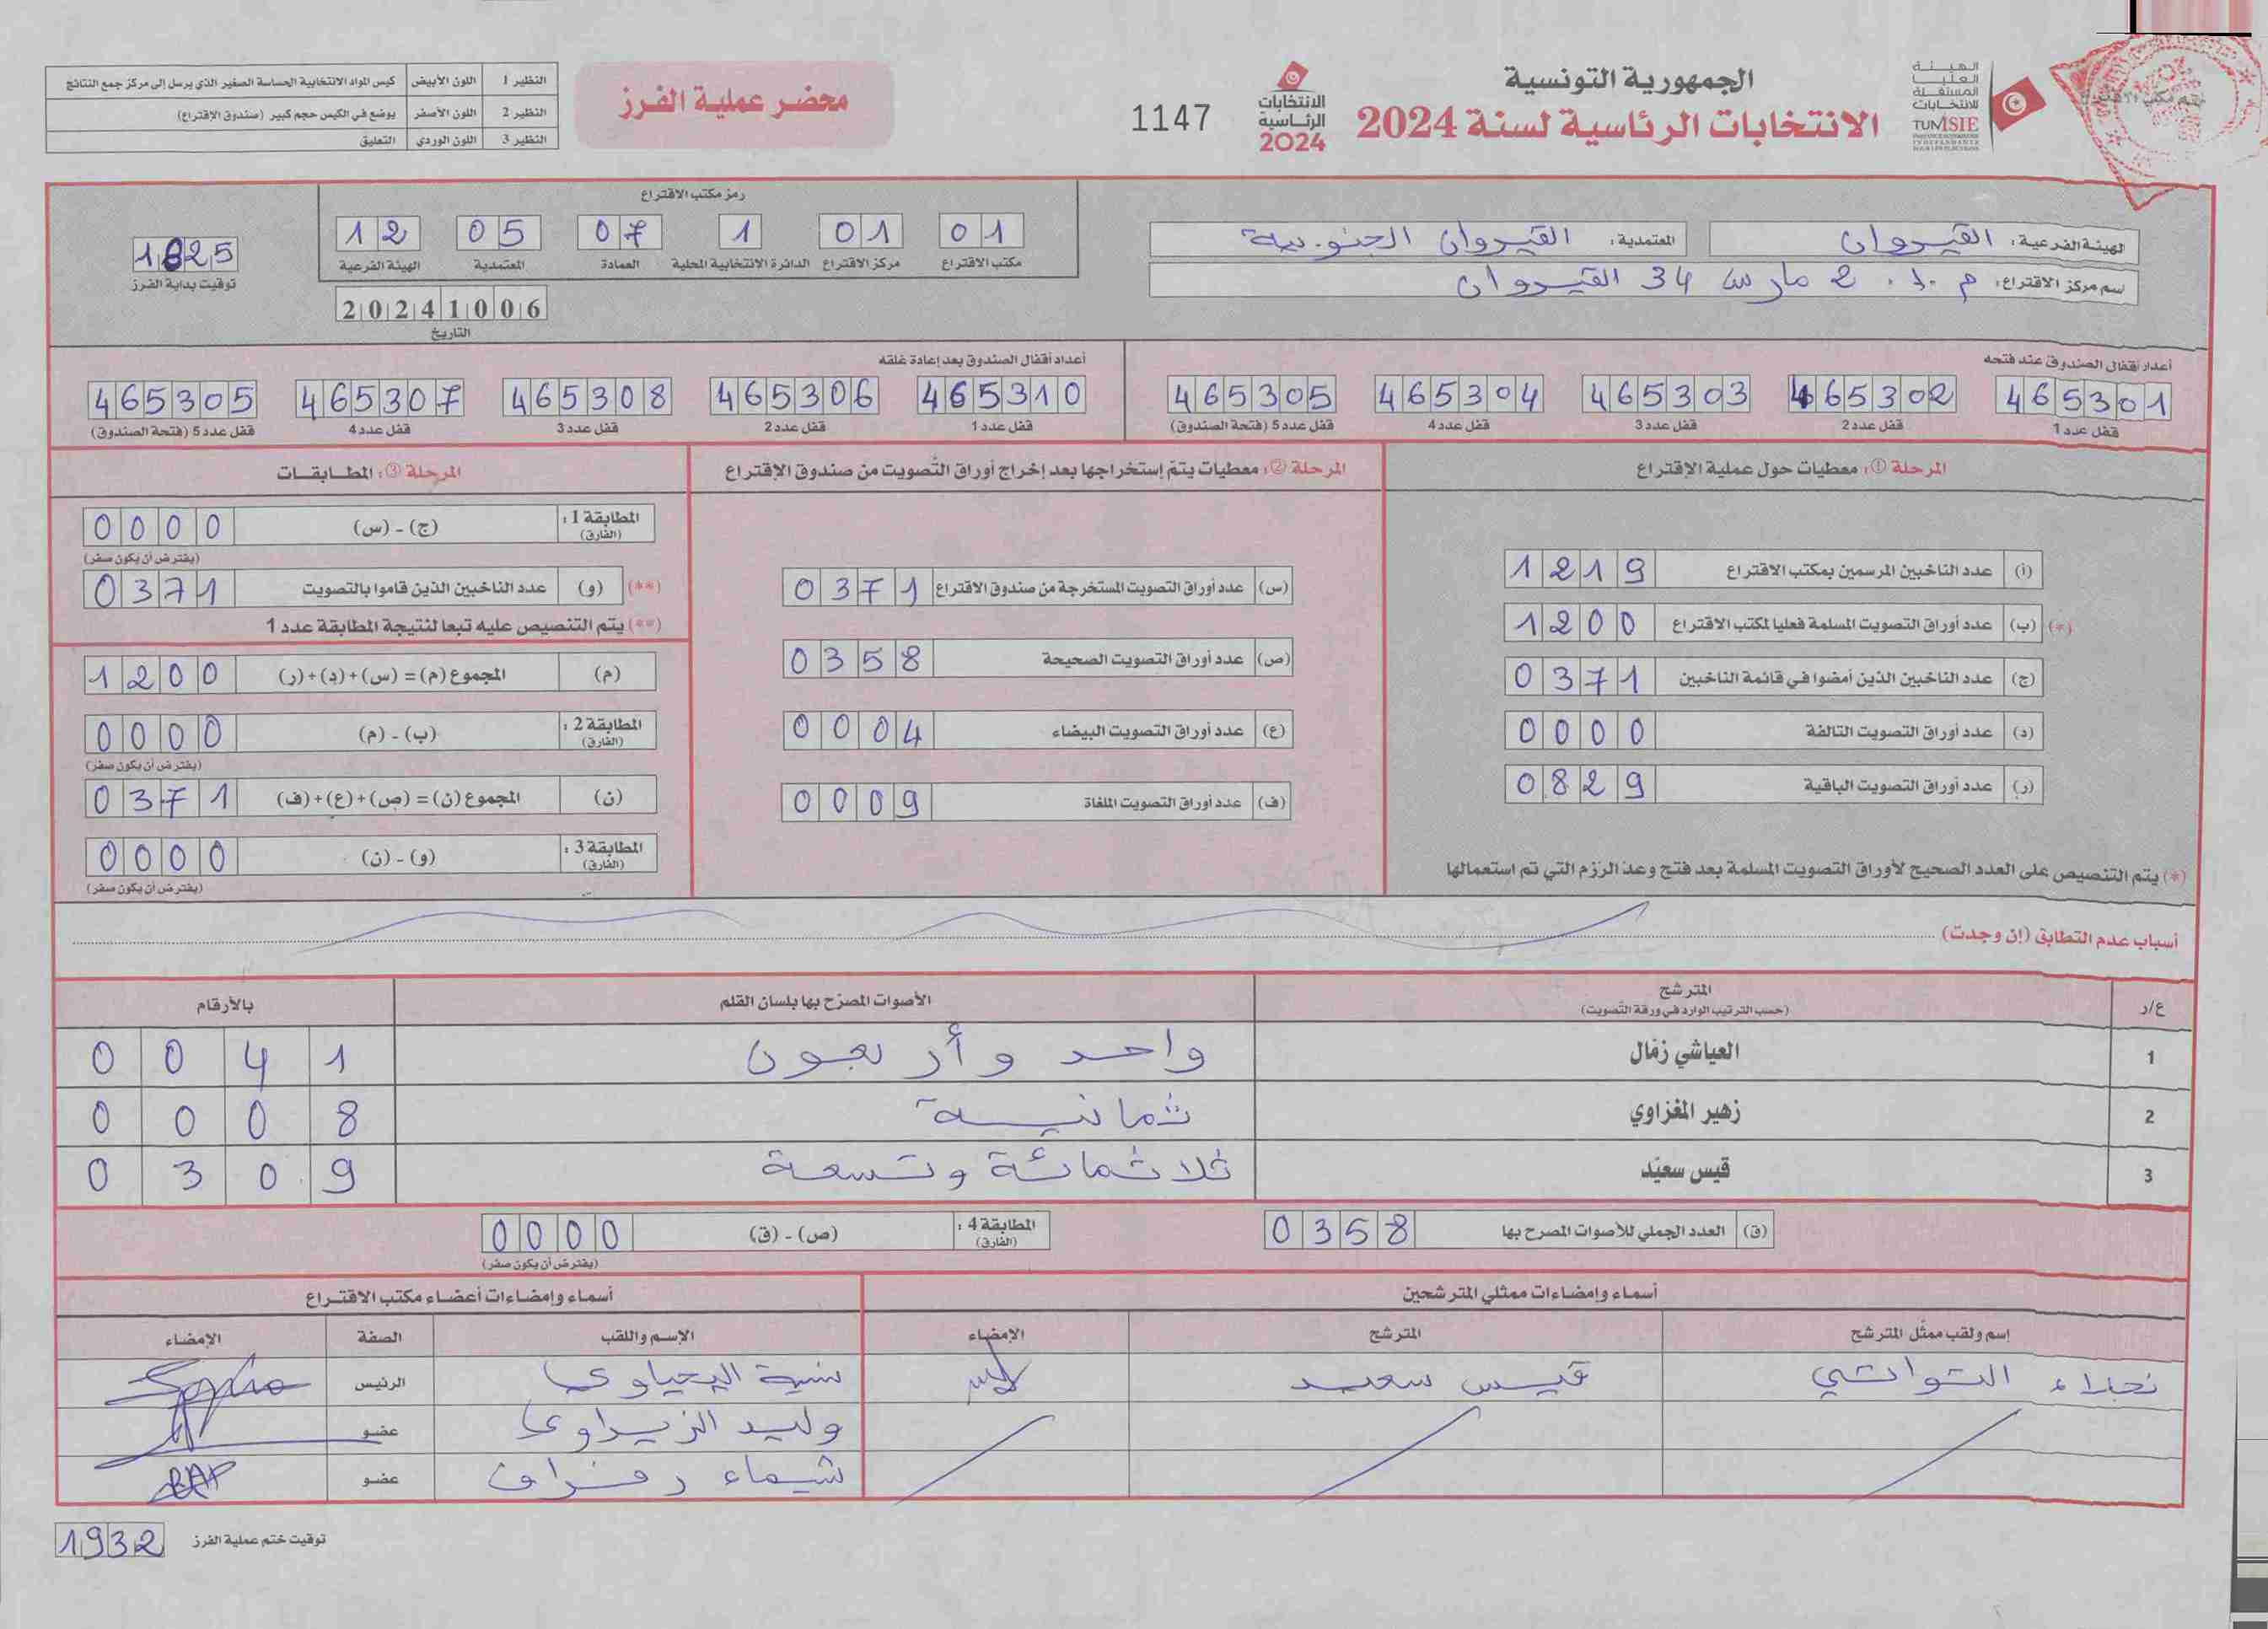 الهيئة
العليا
المستقلة
للانتخابات
TUNISIE
الجمهورية التونسية
الانتخابات الرئاسية لسنة 2024
الانتخابات
الرئاسية
2024
1147
محضر عملية الفرز
النظير 1 اللون الأبيض كيس المواد الانتخابية الحساسة الصغير الذي يرسل إلى مركز جمع النتائج
النظير 2 اللون الأصفر يوضع في الكيس حجم كبير (صندوق الإقتراع)
النظير 3 اللون الوردي التعليق
الهيئة الفرعية: القيروان المعتمدية: القيروان الجنوبية
اسم مركز الاقتراع: م .إ. 2 مارس 34 القيروان
رمز مكتب الاقتراع
01 01 1 07 05 12
مكتب الاقتراع مركز الاقتراع الدائرة الانتخابية المحلية العمادة المعتمدية الهيئة الفرعية
20241006
التاريخ
1825
توقيت بداية الفرز
أعداد أقفال الصندوق عند فتحه
465301 465302 465303 465304 465305
قفل عدد 1 قفل عدد 2 قفل عدد 3 قفل عدد 4 قفل عدد 5 (فتحة الصندوق)
أعداد أقفال الصندوق بعد إعادة غلقه
465310 465306 465308 465307 465305
قفل عدد 1 قفل عدد 2 قفل عدد 3 قفل عدد 4 قفل عدد 5 (فتحة الصندوق)
المرحلة ①: معطيات حول عملية الإقتراع
(أ) عدد الناخبين المرسمين بمكتب الاقتراع 1219
(*) (ب) عدد أوراق التصويت المسلمة فعليا لمكتب الاقتراع 1200
(ج) عدد الناخبين الذين أمضوا في قائمة الناخبين 0371
(د) عدد أوراق التصويت التالفة 0000
(ر) عدد أوراق التصويت الباقية 0829
(*) يتم التنصيص على العدد الصحيح لأوراق التصويت المسلمة بعد فتح وعد الرزم التي تم استعمالها
المرحلة ②: معطيات يتم إستخراجها بعد إخراج أوراق التصويت من صندوق الإقتراع
(س) عدد أوراق التصويت المستخرجة من صندوق الاقتراع 0371
(ص) عدد أوراق التصويت الصحيحة 0358
(ع) عدد أوراق التصويت البيضاء 0004
(ف) عدد أوراق التصويت الملغاة 0009
المرحلة ③: المطابقات
المطابقة 1 : (الفارق) (ج) - (س) 0000
(يفترض أن يكون صفر)
(**) (و) عدد الناخبين الذين قاموا بالتصويت 0371
(**) يتم التنصيص عليه تبعا لنتيجة المطابقة عدد 1
(م) المجموع (م) = (س)+(د)+(ر) 1200
المطابقة 2 : (الفارق) (ب) - (م) 0000
(يفترض أن يكون صفر)
(ن) المجموع (ن) = (ص)+(ع)+(ف) 0371
المطابقة 3 : (الفارق) (و) - (ن) 0000
(يفترض أن يكون صفر)
أسباب عدم التطابق (إن وجدت)
ع/ر المترشح الأصوات المصرّح بها بلسان القلم بالأرقام
(حسب الترتيب الوارد في ورقة التصويت)
1 العياشي زمّال واحد وأربعون 0041
2 زهير المغزاوي ثمانية 0008
3 قيس سعيّد ثلاثمائة وتسعة 0309
(ق) العدد الجملي للأصوات المصرح بها 0358
المطابقة 4 : (الفارق) (ص) - (ق) 0000
(يفترض أن يكون صفر)
أسماء وإمضاءات ممثلي المترشحين
إسم ولقب ممثّل المترشح المترشح الإمضاء
نجلاء التواتي قيس سعيد
أسماء وإمضاءات أعضاء مكتب الاقتراع
الإسم واللقب الصفة الإمضاء
سنية اليحياوي الرئيس
وليد الزيراوي عضو
شيماء عضو
توقيت ختم عملية الفرز 1932